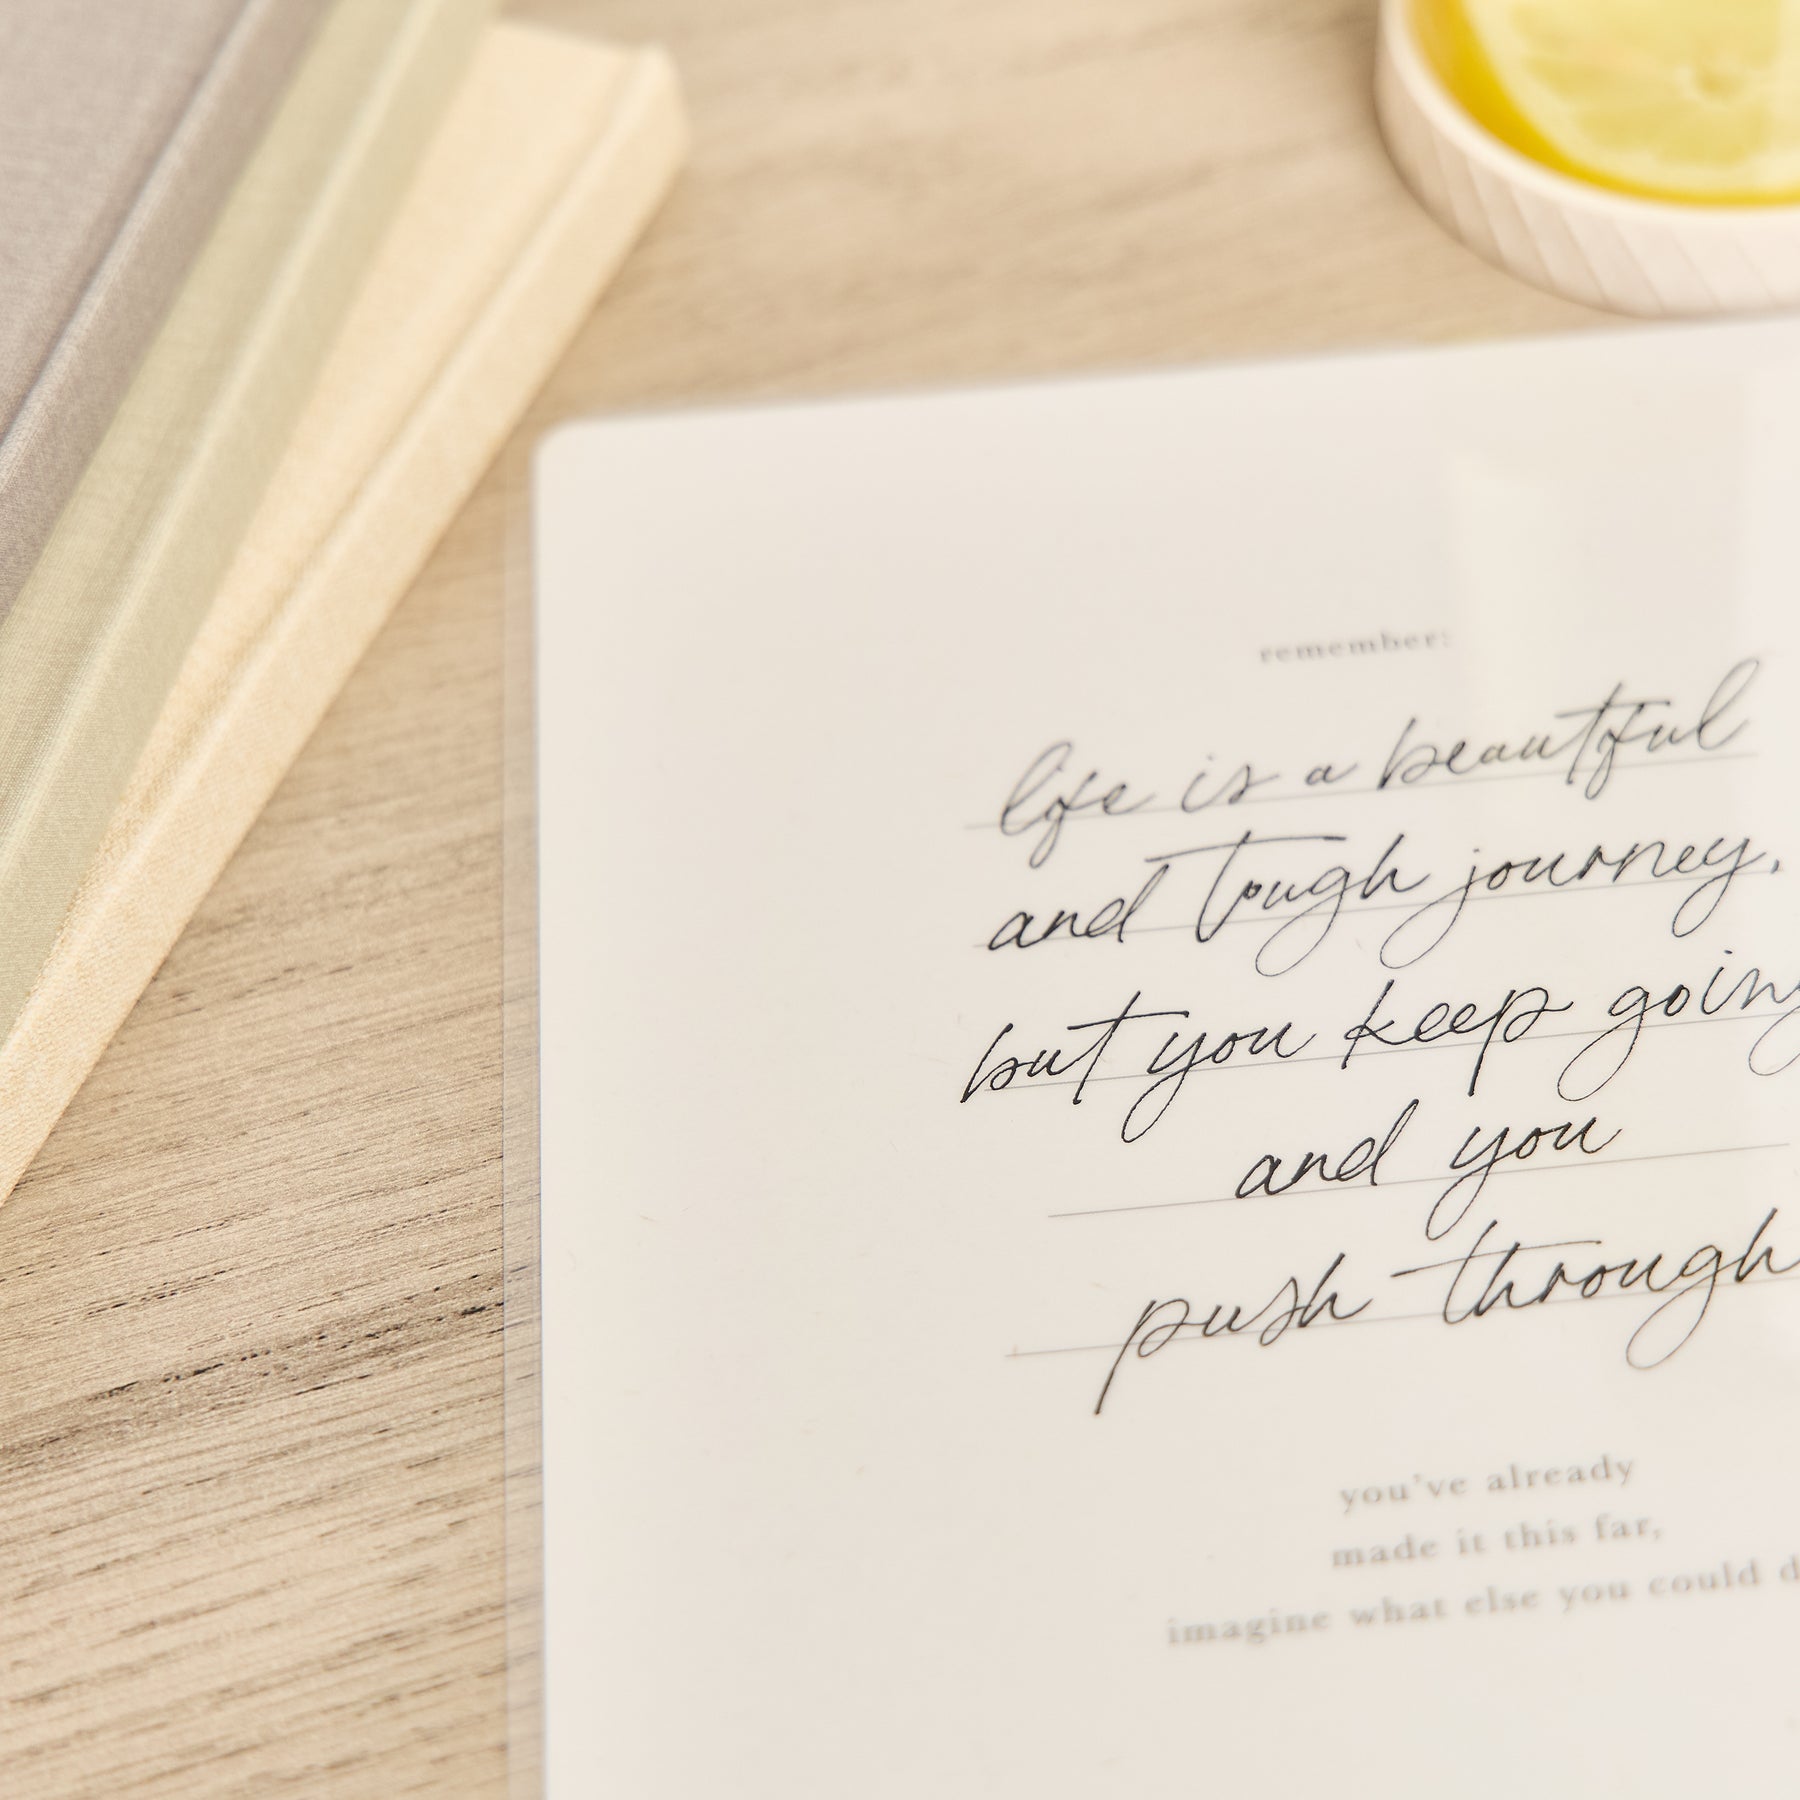 remember:
life is a beautiful
and tough journey,
but you keep going
and you
push through
you've already
made it this far,
imagine what else you could d